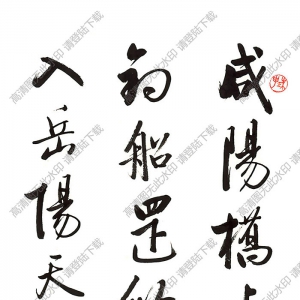 咸陽橋
釣船還
入岳陽天
高清图无此水印 请登陆下载